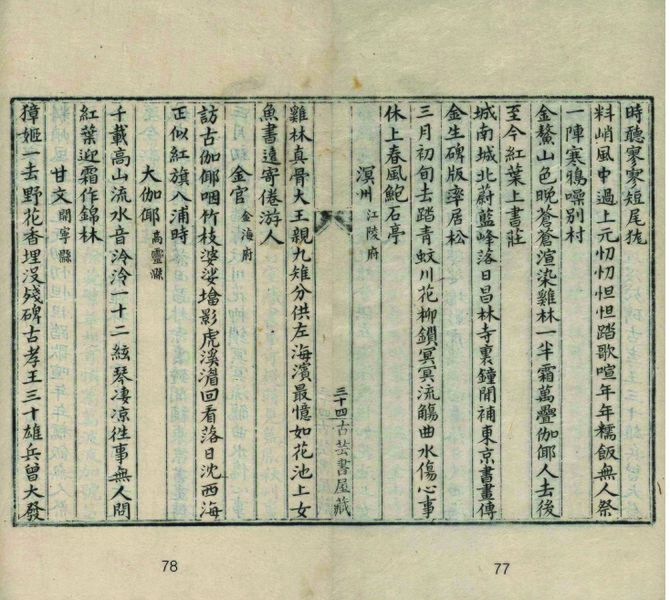 時聽寥寥短尾狵
料峭風中過上元忉忉怛怛踏歌喧年年糯飯無人祭
一陣寒鴉噪別村
金鰲山色晚蒼蒼渲染雞林一半霜萬疊伽倻人去後
至今紅葉上書莊
城南城北蔚藍峰落日昌林寺裏鐘閒補東京書畫傳
金生碑版率居松
三月初旬去踏青蚊川花柳鎖冥冥流觴曲水傷心事
休上春風鮑石亭
溟州 江陵府
三十四古芸書屋藏
雞林真骨大王親九雉分供左海濱最憶如花池上女
魚書遠寄倦游人
金官 金海府
訪古伽倻咽竹枝婆娑塔影虎溪湄回看落日沈西海
正似紅旗入浦時
大伽倻 高靈縣
千載高山流水音泠泠一十二絃琴凄凉往事無人問
紅葉迎霜作錦林
甘文 開寧縣
獐姬一去野花香埋沒殘碑古孝王三十雄兵曾大發
78
77